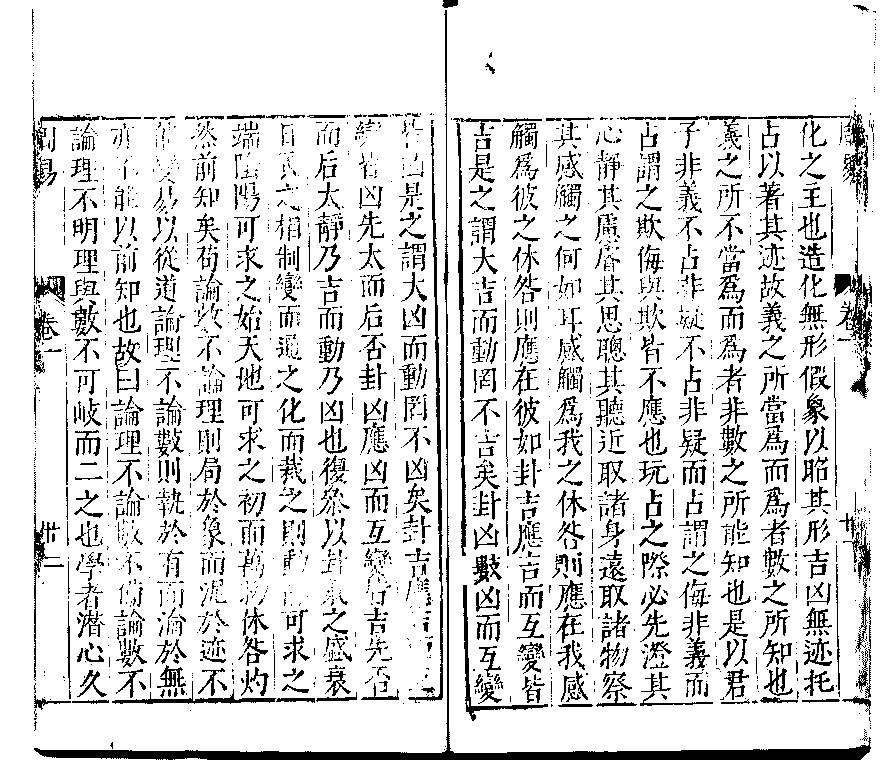 化之主也造化無形假象以昭其形吉凶無迹托
占以著其迹故義之所當為而為者數之所知也
義之所不當為而為者非數之所能知也是以君
子非義不占非疑不占非疑而占謂之侮非義而
占謂之欺侮與欺皆不應也玩占之際必先澄其
心靜其慮睿其思聰其聽近取諸身遠取諸物察
其感觸之何如耳感觸為我之休咎則應在我感
觸為彼之休咎則應在彼如卦吉應吉而互變皆
吉是之謂大吉而動罔不吉矣卦凶數凶而互變
皆凶是之謂大凶而動罔不凶矣卦吉應吉而互
變皆凶先太而后否卦凶應凶而互變皆吉先否
而后太靜乃吉而動乃凶也復參以卦氣之盛衰
日辰之相制變而通之化而裁之則動靜可求之
端陰陽可求之始天地可求之初而萬物休咎灼
然前知矣苟論數不論理則局於象而泥於迹不
能變易以從道論理不論數則執於有而淪於無
亦不能以前知也故曰論理不論數不備論數不
論理不明理與數不可岐而二之也學者潛心久
易
卷一
廿二